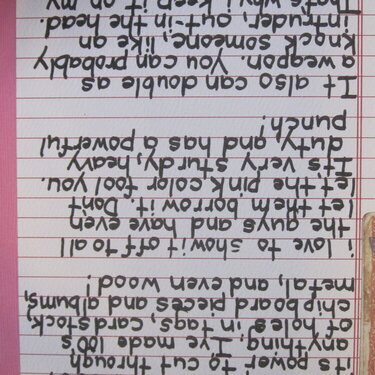 its power to cut through
anything, I've made 100's
of holes in tags, cardstock,
chipboard pieces and albums,
metal, and even wood!
i love to show it off to all
the guys and have even
let them borrow it. Don't
let the pink color fool you.
It's very sturdy, heavy
duty, and has a powerful
punch!
It also can double as
a weapon. You can probably
knock someone, like an
intruder, out-in the head.
That's why i keep it on my